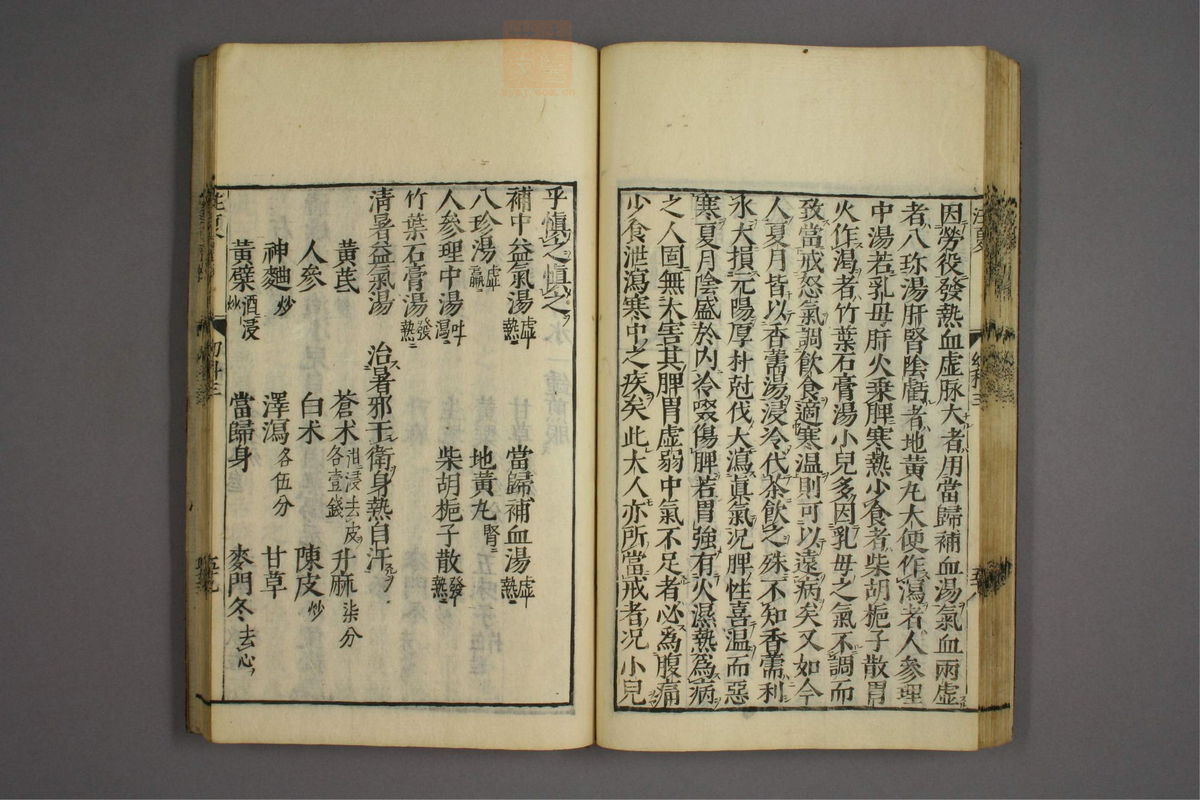 因勞役發熱血虛脉大者用當歸補血湯氣血兩虛
者八珎湯肝腎陰虧者地黃丸大便作瀉者人參理
中湯若乳母肝火乗脾寒熱少食者柴胡梔子散胃
火作渴者竹葉石膏湯小兒多因乳母之氣不調而
致當戒怒氣調飲食適寒温則可以遠病矣又如今
人夏月皆以香薷湯浸冷代茶飲之殊不知香薷利
水大損元陽厚朴尅伐大瀉眞氣况脾性喜温而惡
寒夏月陰盛於内冷啜傷脾若胃強有火濕熱爲病
之人固無大害其脾胃虛弱中氣不足者必爲腹痛
少食泄瀉寒中之疾矣此大人亦所當戒者况小兒
乎愼之愼之
補中益氣湯虛熱 當歸補血湯虛熱
八珍湯虛羸 地黃丸腎
人參理中湯吐瀉 柴胡梔子散發熱
竹葉石膏湯發熱
淸暑益氣湯 治暑邪干衛身熱自汗
黃芪 蒼术泔浸去皮各壹錢 升麻柒分
人參 白术 陳皮炒
神麯炒 澤瀉各伍分 甘草
黃蘗酒浸炒 當歸身 麥門冬去心